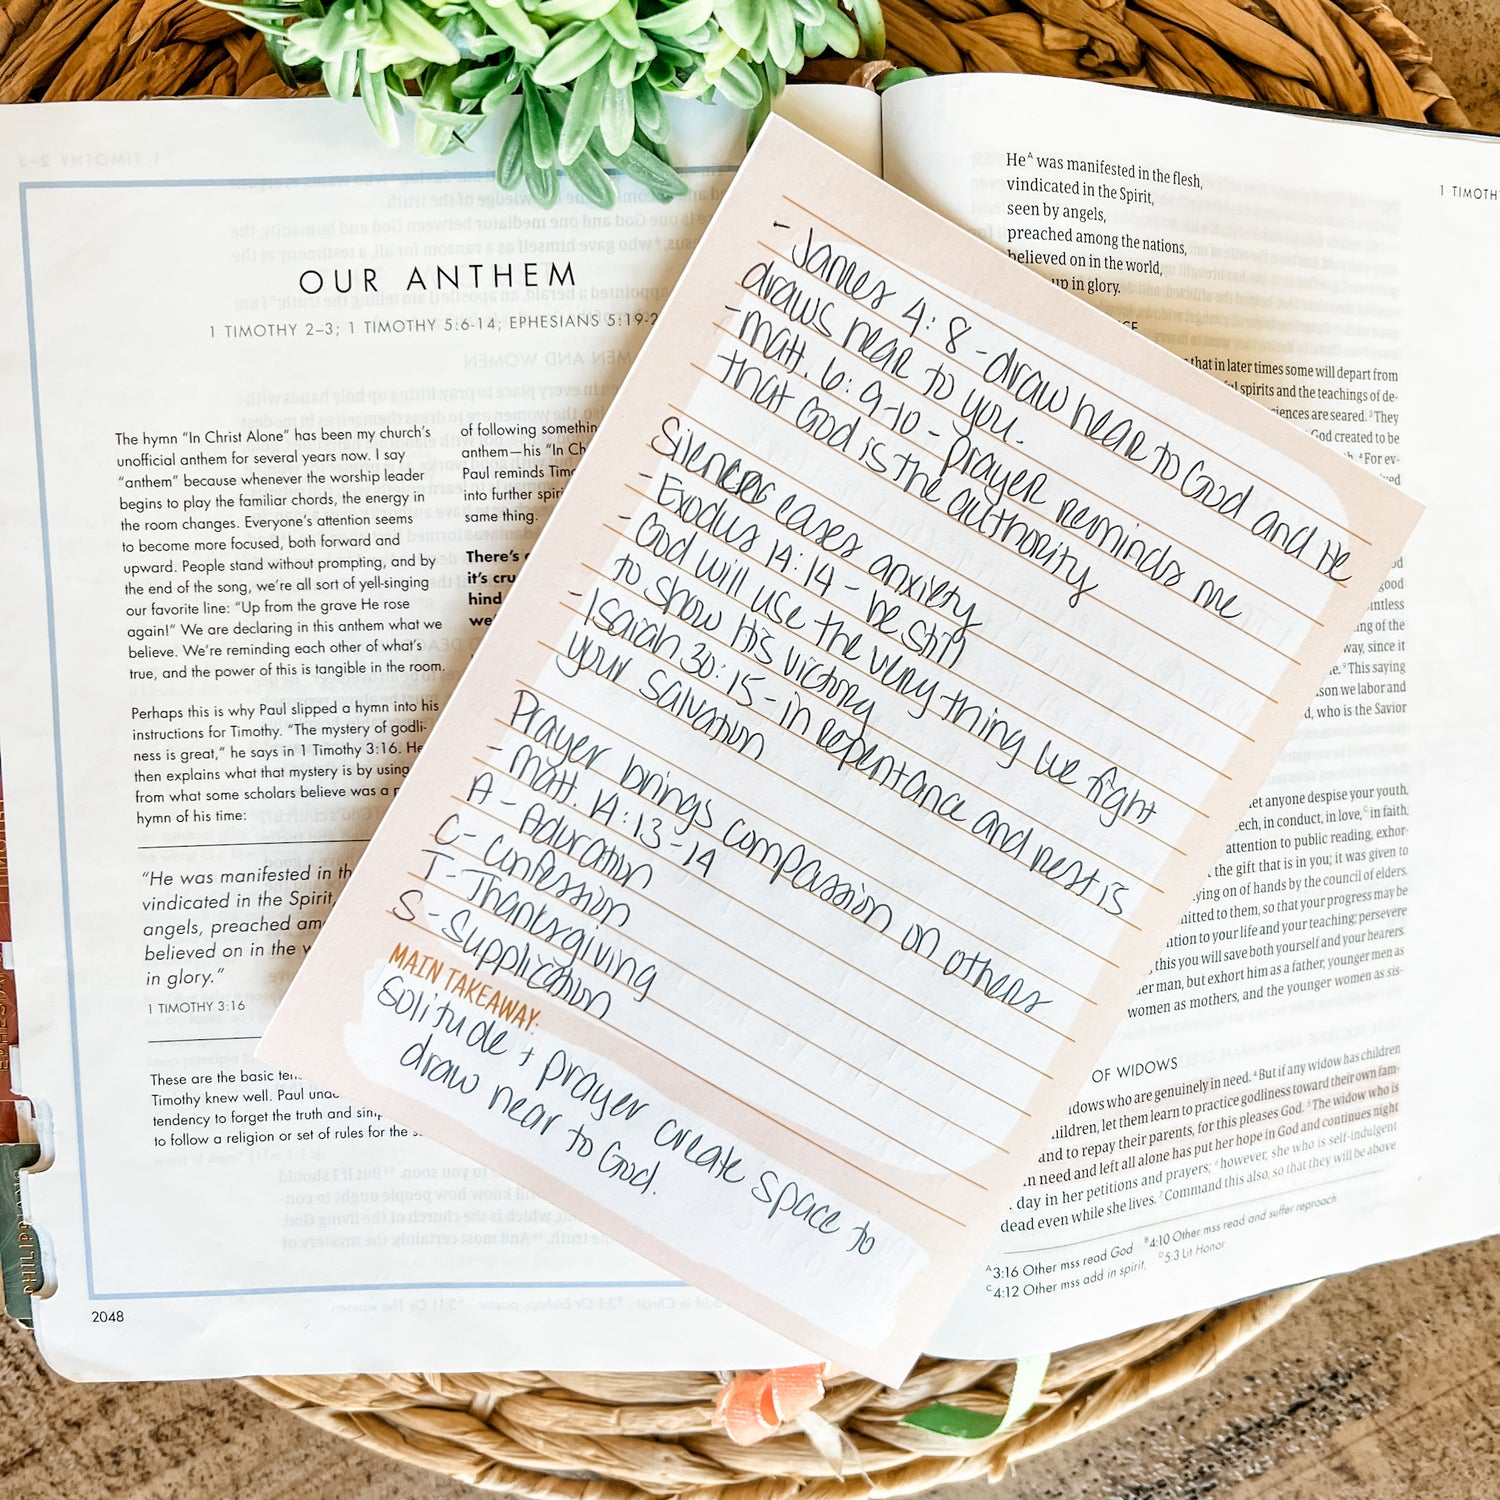 OUR ANTHEM
1 TIMOTHY 2–3; 1 TIMOTHY 5:6-14; EPHESIANS 5:19-2
The hymn “In Christ Alone” has been my church’s
unofficial anthem for several years now. I say
“anthem” because whenever the worship leader
begins to play the familiar chords, the energy in
the room changes. Everyone’s attention seems
to become more focused, both forward and
upward. People stand without prompting, and by
the end of the song, we’re all sort of yell-singing
our favorite line: “Up from the grave He rose
again!” We are declaring in this anthem what we
believe. We’re reminding each other of what’s
true, and the power of this is tangible in the room.
Perhaps this is why Paul slipped a hymn into his
instructions for Timothy. “The mystery of godli-
ness is great,” he says in 1 Timothy 3:16. He
then explains what that mystery is by using
from what some scholars believe was a
hymn of his time:
“He was manifested in th
vindicated in the Spirit,
angels, preached am
believed on in the w
in glory.”
1 TIMOTHY 3:16
These are the basic
Timothy knew well. Paul
tendency to forget the truth and
to follow a religion or set of rules for the
2048
of following somethin
anthem—his “In Ch
Paul reminds Timo
into further spiri
same thing.
There’s
it’s cru
hind
we’
- James 4:8 - draw near to God and He
draws near to you.
- Matt. 6:9-10 - Prayer reminds me
that God is the authority
Silence eases anxiety
- Exodus 14:14 - be still
- God will use the very thing we fight
to show His victory
- Isaiah 30:15 - in repentance and rest is
your salvation
Prayer brings compassion on others
- Matt. 14:13-14
A - Adoration
C - Confession
T - Thanksgiving
S - Supplication
MAIN TAKEAWAY:
Solitude + prayer create space to
draw near to God.
1 TIMOTH
He^A was manifested in the flesh,
vindicated in the Spirit,
seen by angels,
preached among the nations,
believed on in the world,
up in glory.
that in later times some will depart from
spirits and the teachings of de-
iences are seared. ³They
God created to be
⁴For ev-
good
ing of the
way, since it
⁹This saying
son we labor and
d, who is the Savior
let anyone despise your youth,
ech, in conduct, in love,^C in faith,
attention to public reading, exhor-
the gift that is in you; it was given to
ying on of hands by the council of elders.
mitted to them, so that your progress may be
ntion to your life and your teaching; persevere
this you will save both yourself and your hearers.
er man, but exhort him as a father, younger men as
women as mothers, and the younger women as sis-
OF WIDOWS
idows who are genuinely in need. ⁴But if any widow has children
ildren, let them learn to practice godliness toward their own fam-
and to repay their parents, for this pleases God. ⁵The widow who is
n need and left all alone has put her hope in God and continues night
day in her petitions and prayers; ⁶however, she who is self-indulgent
dead even while she lives. ⁷Command this also, so that they will be above
^A3:16 Other mss read God ^B4:10 Other mss read and suffer reproach
^C4:12 Other mss add in spirit, ^D5:3 Lit Honor